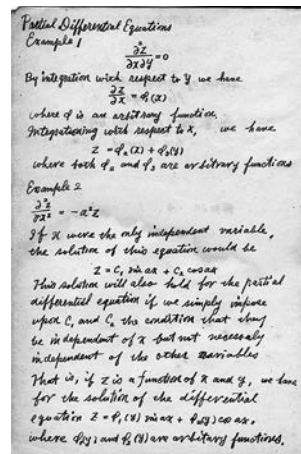 Partial Differential Equations
Example 1
∂²z/∂x∂y = 0
By integration with respect to y we have
∂z/∂x = φ₁(x)
where φ is an arbitrary function.
Integrationing with respect to x, we have
z = φ₂(x) + φ₃(y)
where both φ₂ and φ₃ are arbitrary functions
Example 2
∂²z/∂x² = -a²z
If x were the only independent variable,
the solution of this equation would be
z = C₁ sin ax + C₂ cos ax
This solution will also hold for the partial
differential equation if we simply impose
upon C₁ and C₂ the condition that they
be independent of x but not necessaly
independent of the other variables
That is, if z is a function of x and y, we have
for the solution of the differential
equation z = φ₁(y) sin ax + φ₂(y) cos ax,
where φ₁(y) and φ₂(y) are arbitary functions.